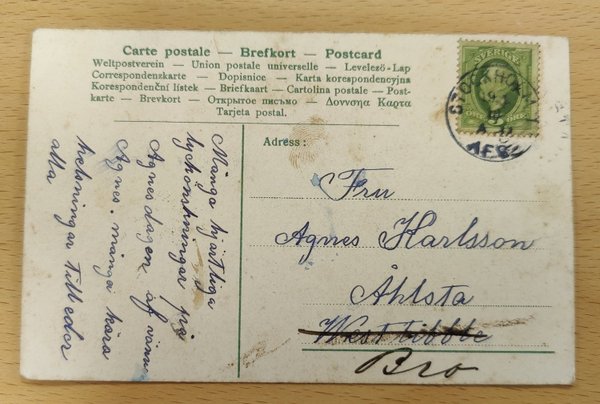 Carte postale — Brefkort — Postcard
Weltpostverein — Union postale universelle — Levelező-Lap
Correspondenzkarte — Dopisnice — Karta korespondencyjna
Korespondenční lístek — Briefkaart — Cartolina postale — Post-
karte — Brevkort — Открытое письмо — Δονυσηα Καρτα
Tarjeta postal.
SVERIGE
STOCKHOLM
Adress:
Fru
Agnes Karlsson
Åhlsta
Westtibble
Bro
Många hjärtliga
lyckönskningar på
Agnesdagen af vännen
Agnes. många kära
helsningar till eder
alla